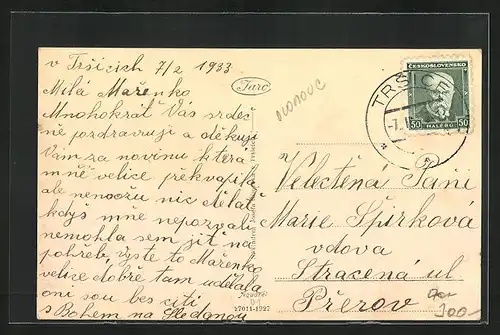 v Tršicích 7/2 1933
Milá Mařenko
Mnohokrát Vás srdeč
ně pozdravuji a děkuji
Vám za novinu která
mně velice překvapila
ale nemožu nic dělat
kdys mně nepozvali
nemohla sem jít na
pohřeb, vyste to Mařenko
velice dobře tam udělala
oni sou bes citi
s Bohem na Shledanou
Tarc
OLOMOUC
ČESKOSLOVENSKO
50 HALÉŘŮ 50
TRŠICE
Velectěná Paní
Marie Špirková
vdova
Stracená ul
Přerov
300-